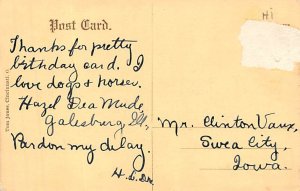 Hi
Post Card.
Thanks for pretty
birthday card. I
love dogs & horses.
Hazel Dea
Galesburg, Ill,
Pardon my delay.
H. D.
Mr. Clinton Vaux,
Swea City,
Iowa.
Tom Jones, Cincinnati, O.